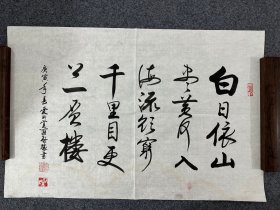 白日依山
尽黄河入
海流欲穷
千里目更
上一层楼
庚寅年春